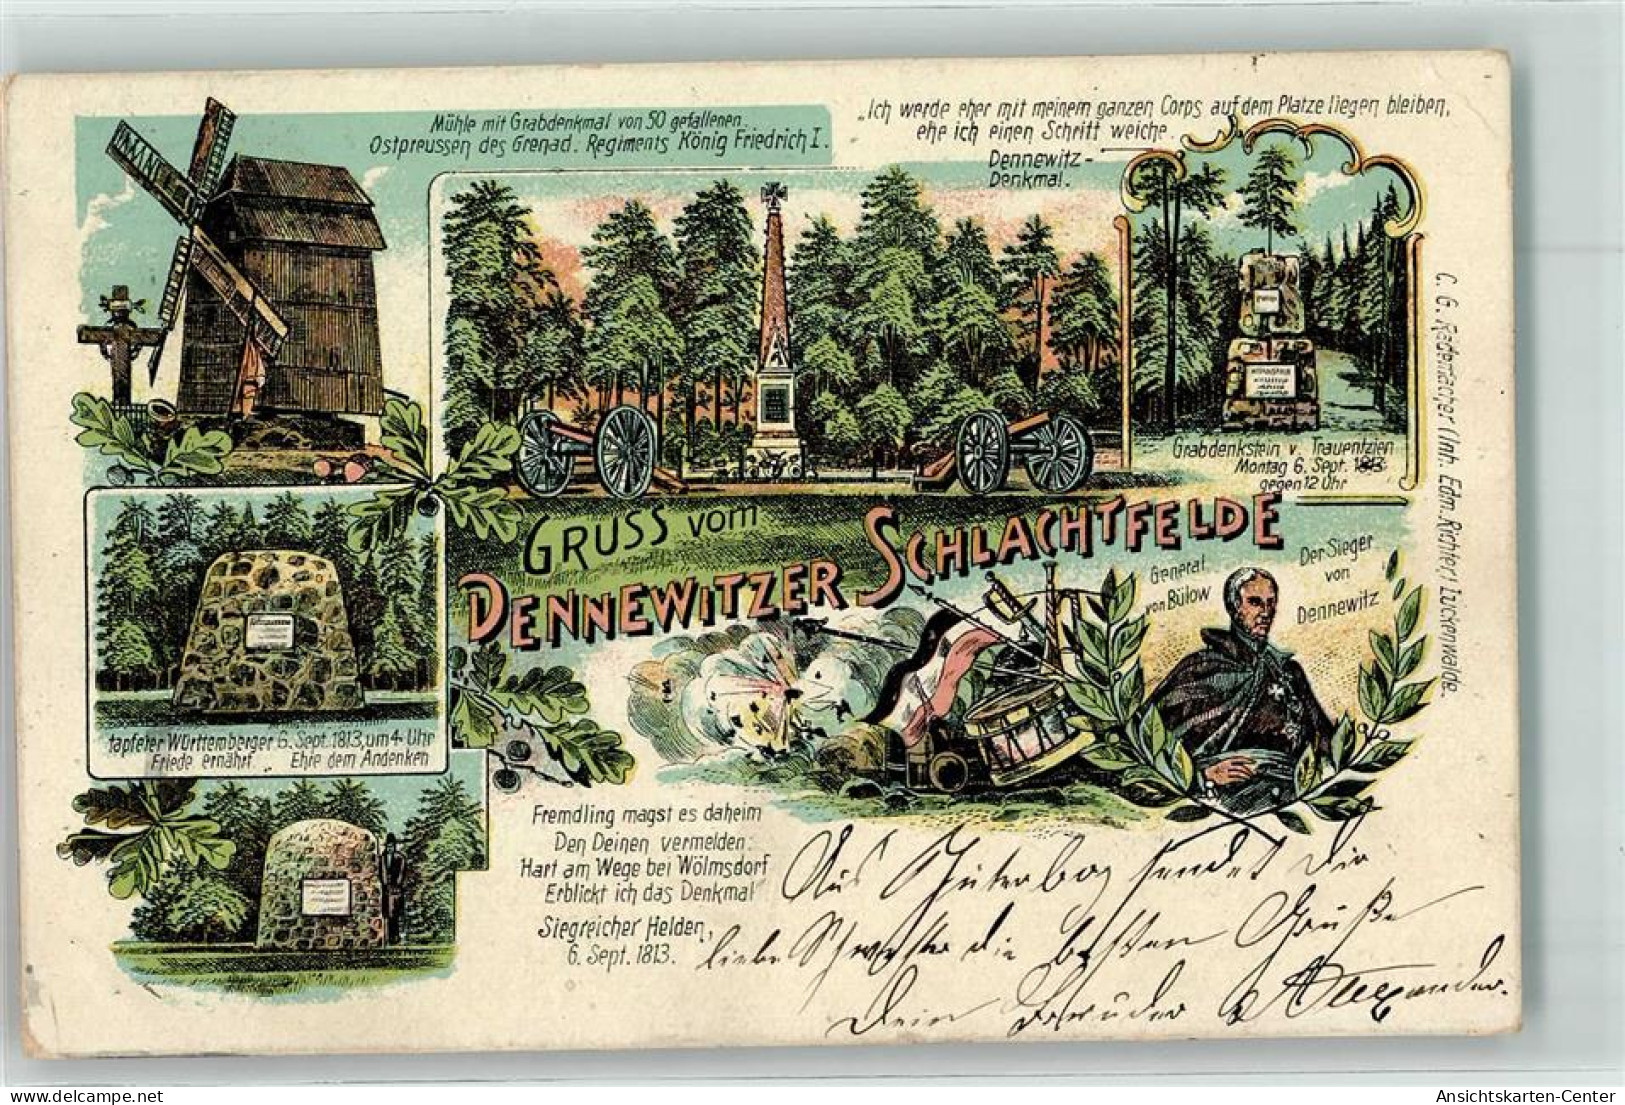 Mühle mit Grabdenkmal von 50 gefallenen
Ostpreussen des Grenad. Regiments König Friedrich I.
„Ich werde eher mit meinem ganzen Corps auf dem Platze liegen bleiben,
ehe ich einen Schritt weiche.
Dennewitz-
Denkmal.
Grabdenkstein v. Trauentzien
Montag 6. Sept. 1813
gegen 12 Uhr
C. G. Rademacher (Inh. Edm. Richter) Luckenwalde.
GRUSS vom
DENNEWITZER SCHLACHTFELDE
General
von Bülow
Der Sieger
von
Dennewitz
tapferer Württemberger 6. Sept. 1813, um 4 Uhr
Friede ernährt. Ehre dem Andenken
Fremdling magst es daheim
Den Deinen vermelden:
Hart am Wege bei Wölmsdorf
Erblickt ich das Denkmal
Siegreicher Helden,
6. Sept. 1813.
Aus Jüterbog sendet Dir
liebe Schwester die besten Grüße
Dein Bruder Alexander.
delcampe.net
Ansichtskarten-Center